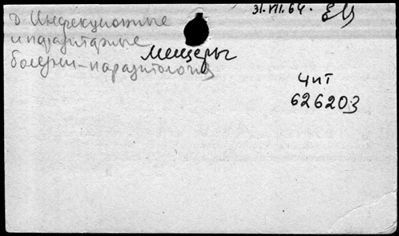 31.VII.64. ЕЦ
Инфекционные
и паразитарные
болезни - паразитология
Мещеры
Чит
626203